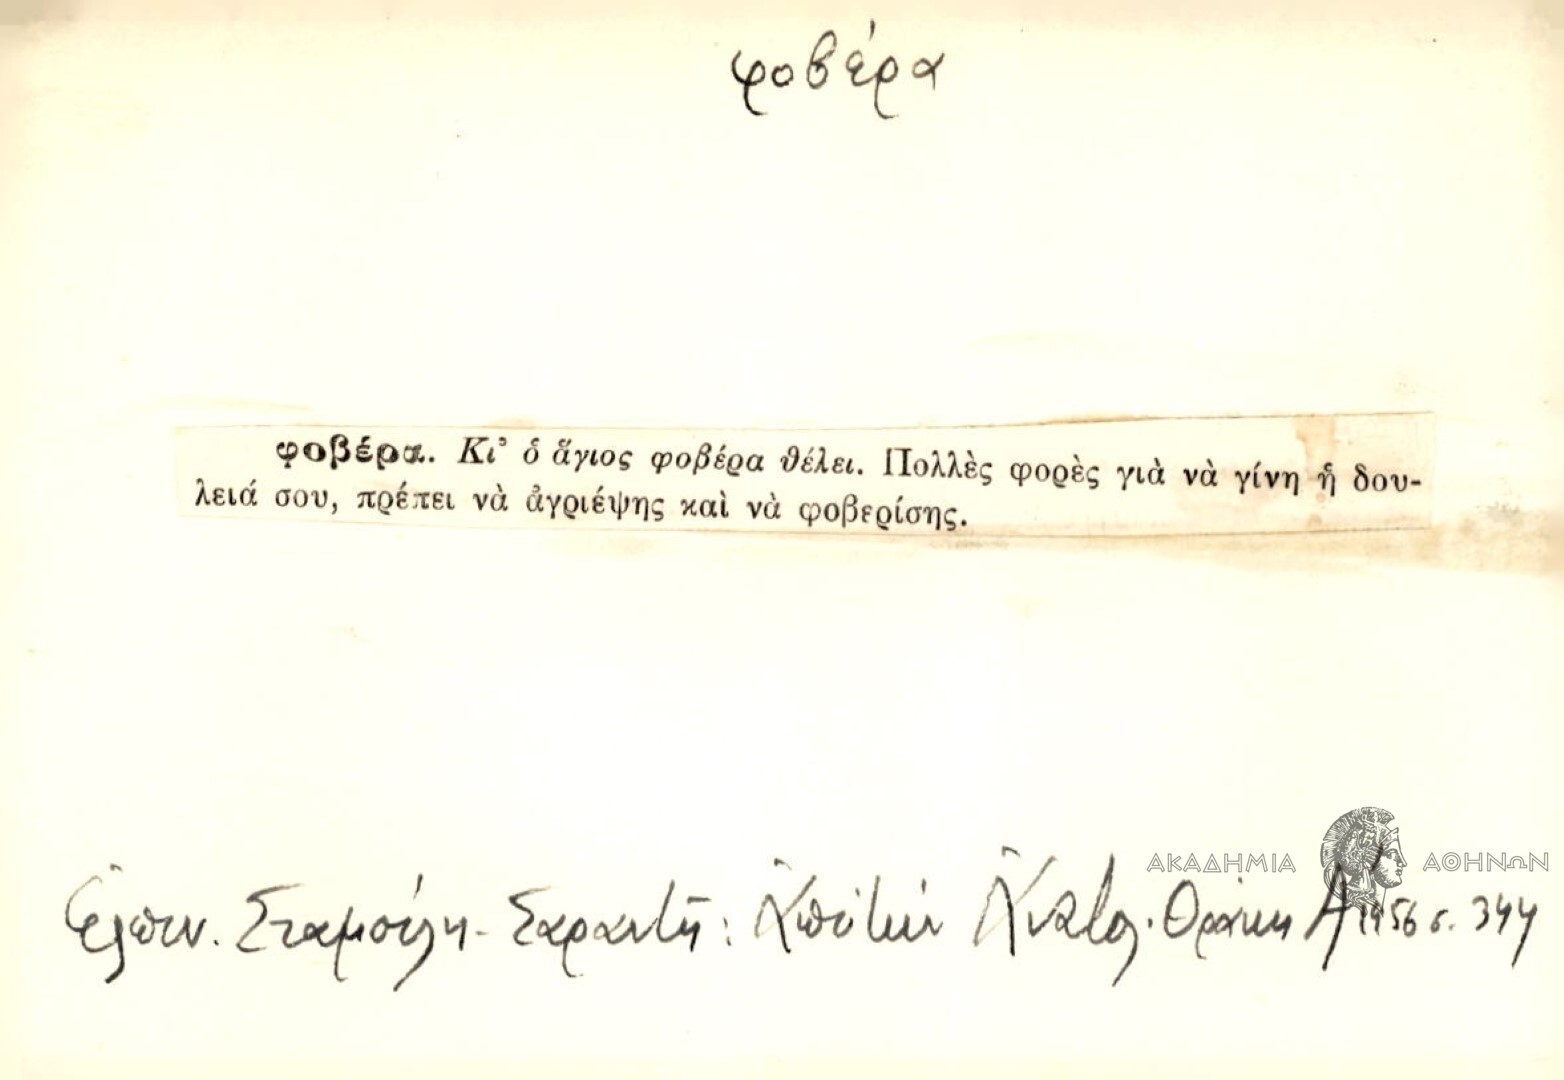 φοβέρα
φοβέρα. Κι᾿ ὁ ἅγιος φοβέρα θέλει. Πολλὲς φορὲς γιὰ νὰ γίνη ἡ δου-
λειά σου, πρέπει νὰ ἀγριέψης καὶ νὰ φοβερίσης.
ΑΚΑΔΗΜΙΑ ΑΘΗΝΩΝ
Ἐλπιν. Σταμούλη - Σαραντῆ: Ἀπὸ τὴν Ἀνατολ. Θράκη Α 1956 σ. 344